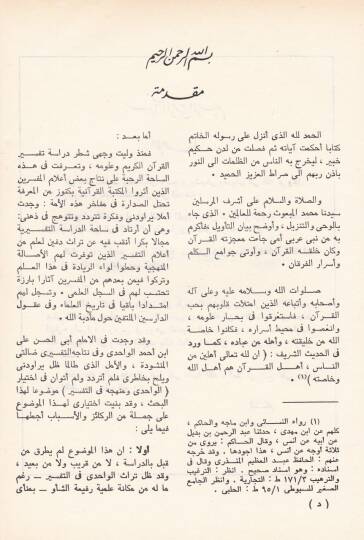 بسم الله الرحمن الرحيم
مقدمة
الحمد لله الذى أنزل على رسوله الخاتم
كتابا أحكمت آياته ثم فصلت من لدن حكيم
خبير ، ليخرج به الناس من الظلمات الى النور
باذن ربهم الى صراط العزيز الحميد .
والصلاة والسلام على أشرف المرسلين
سيدنا محمد المبعوث رحمة للعالمين . الذى جاء
بالوحى والتنزيل ، وأوضح بيان التأويل فأكرم
به من نبى عربى أمى جاءت معجزته القرآن
وكان خلقه القرآن ، وأوتى جوامع الكلم
وأسرار الفرقان .
صلوات الله وسلامه عليه وعلى آله
وأصحابه وأتباعه الذين امتلات قلوبهم بحب
القرآن ، فاستغرقوا فى بحار علومه ،
وانغمسوا فى محيط أسراره ، فكانوا خاصة
الله من خليقته ، وأهله من عباده ، كما ورد
فى الحديث الشريف : ( ان لله تعالى أهلين من
الناس ، أهل القرآن هم أهل الله
وخاصته ) (١) .
(١) رواه النسائى وابن ماجه والحاكم ،
كلهم عن ابن مهدى ، حدثنا عبد الرحمن بن بديل
عن أبيه عن أنس ، وقال الحاكم : يروى من
ثلاثة أوجه عن أنس ، هذا أجودها . وقد خرجه
عنهم : الحافظ عبد العظيم المنذرى وقال فى
اسناده : وهو اسناد صحيح . انظر : الترغيب
والترهيب ١٧١/٣ ط : التجارية . وانظر الجامع
الصغير للسيوطى ٩٥/١ ط : الحلبى .
أما بعد :
فمنذ وليت وجهى شطر دراسة تفسير
القرآن الكريم وعلومه ، وتعرفت فى هذه
الساحة الرحبة على نتاج بعض أعلام المفسرين
الذين أثروا المكتبة القرآنية بكنوز من المعرفة
تحتل الصدارة فى مفاخر هذه الأمة : وجدت
أملا يراودنى وفكرة تتردد وتتوهج فى ذهنى:
وهى أن أرتاد فى ساحة الدراسة التفسيرية
مجالا بكرا أنقب فيه عن تراث دفين لعلم من
أعلام التفسير الذين توفرت لهم الأصالة
المنهجية وحملوا لواء الريادة فى هذا العلم
وتركوا فيمن بعدهم من المفسرين آثارا بارزة
تحتسب لهم فى السجل العلمى . وتسجل لهم
امتدادا باقيا فى تاريخ العلماء وفى عقول
الدارسين الملتفين حول مأدبة الله .
وقد وجدت فى الامام أبى الحسن على
ابن أحمد الواحدى وفى نتاجه التفسيرى ضالتى
المنشودة ، والأمل الذى طالما ظل يراودنى
ويلح بخاطرى فلم أتردد ولم أتوان فى اختيار
( الواحدى ومنهجه فى التفسير ) موضوعا لهذا
البحث ، وقد بنيت اختيارى لهذا الموضوع
على جملة من الركائز والأسباب أجملها
فيما يلى :
أولا : ان هذا الموضوع لم يطرق من
قبل بالدراسة ، لا من قريب ولا من بعيد ،
وقد ظل تراث الواحدى فى التفسير – رغم
ما له من مكانة علمية رفيعة الشأو – بمنأى
( د )